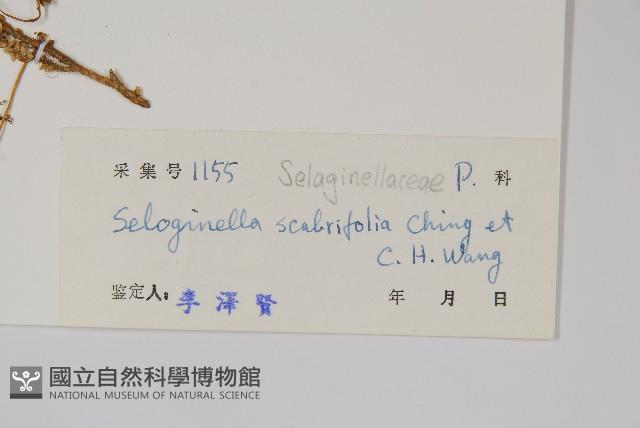 采集号 1155 Selaginellaceae P. 科
Seloginella scabrifolia Ching et
C. H. Wang
鉴定人: 李澤賢 年 月 日
國立自然科學博物館
NATIONAL MUSEUM OF NATURAL SCIENCE